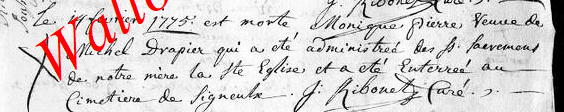 J. Ribonet Curé.
le 19 fevrier 1775. est morte Monique Pierre Veuve de
Michel Drapier qui a été administreé des SS. sacremens
de notre mère la Ste Eglise et a été Enterreé au
Cimetiere de Signeulx. J. Ribonet Curé.
Wallo